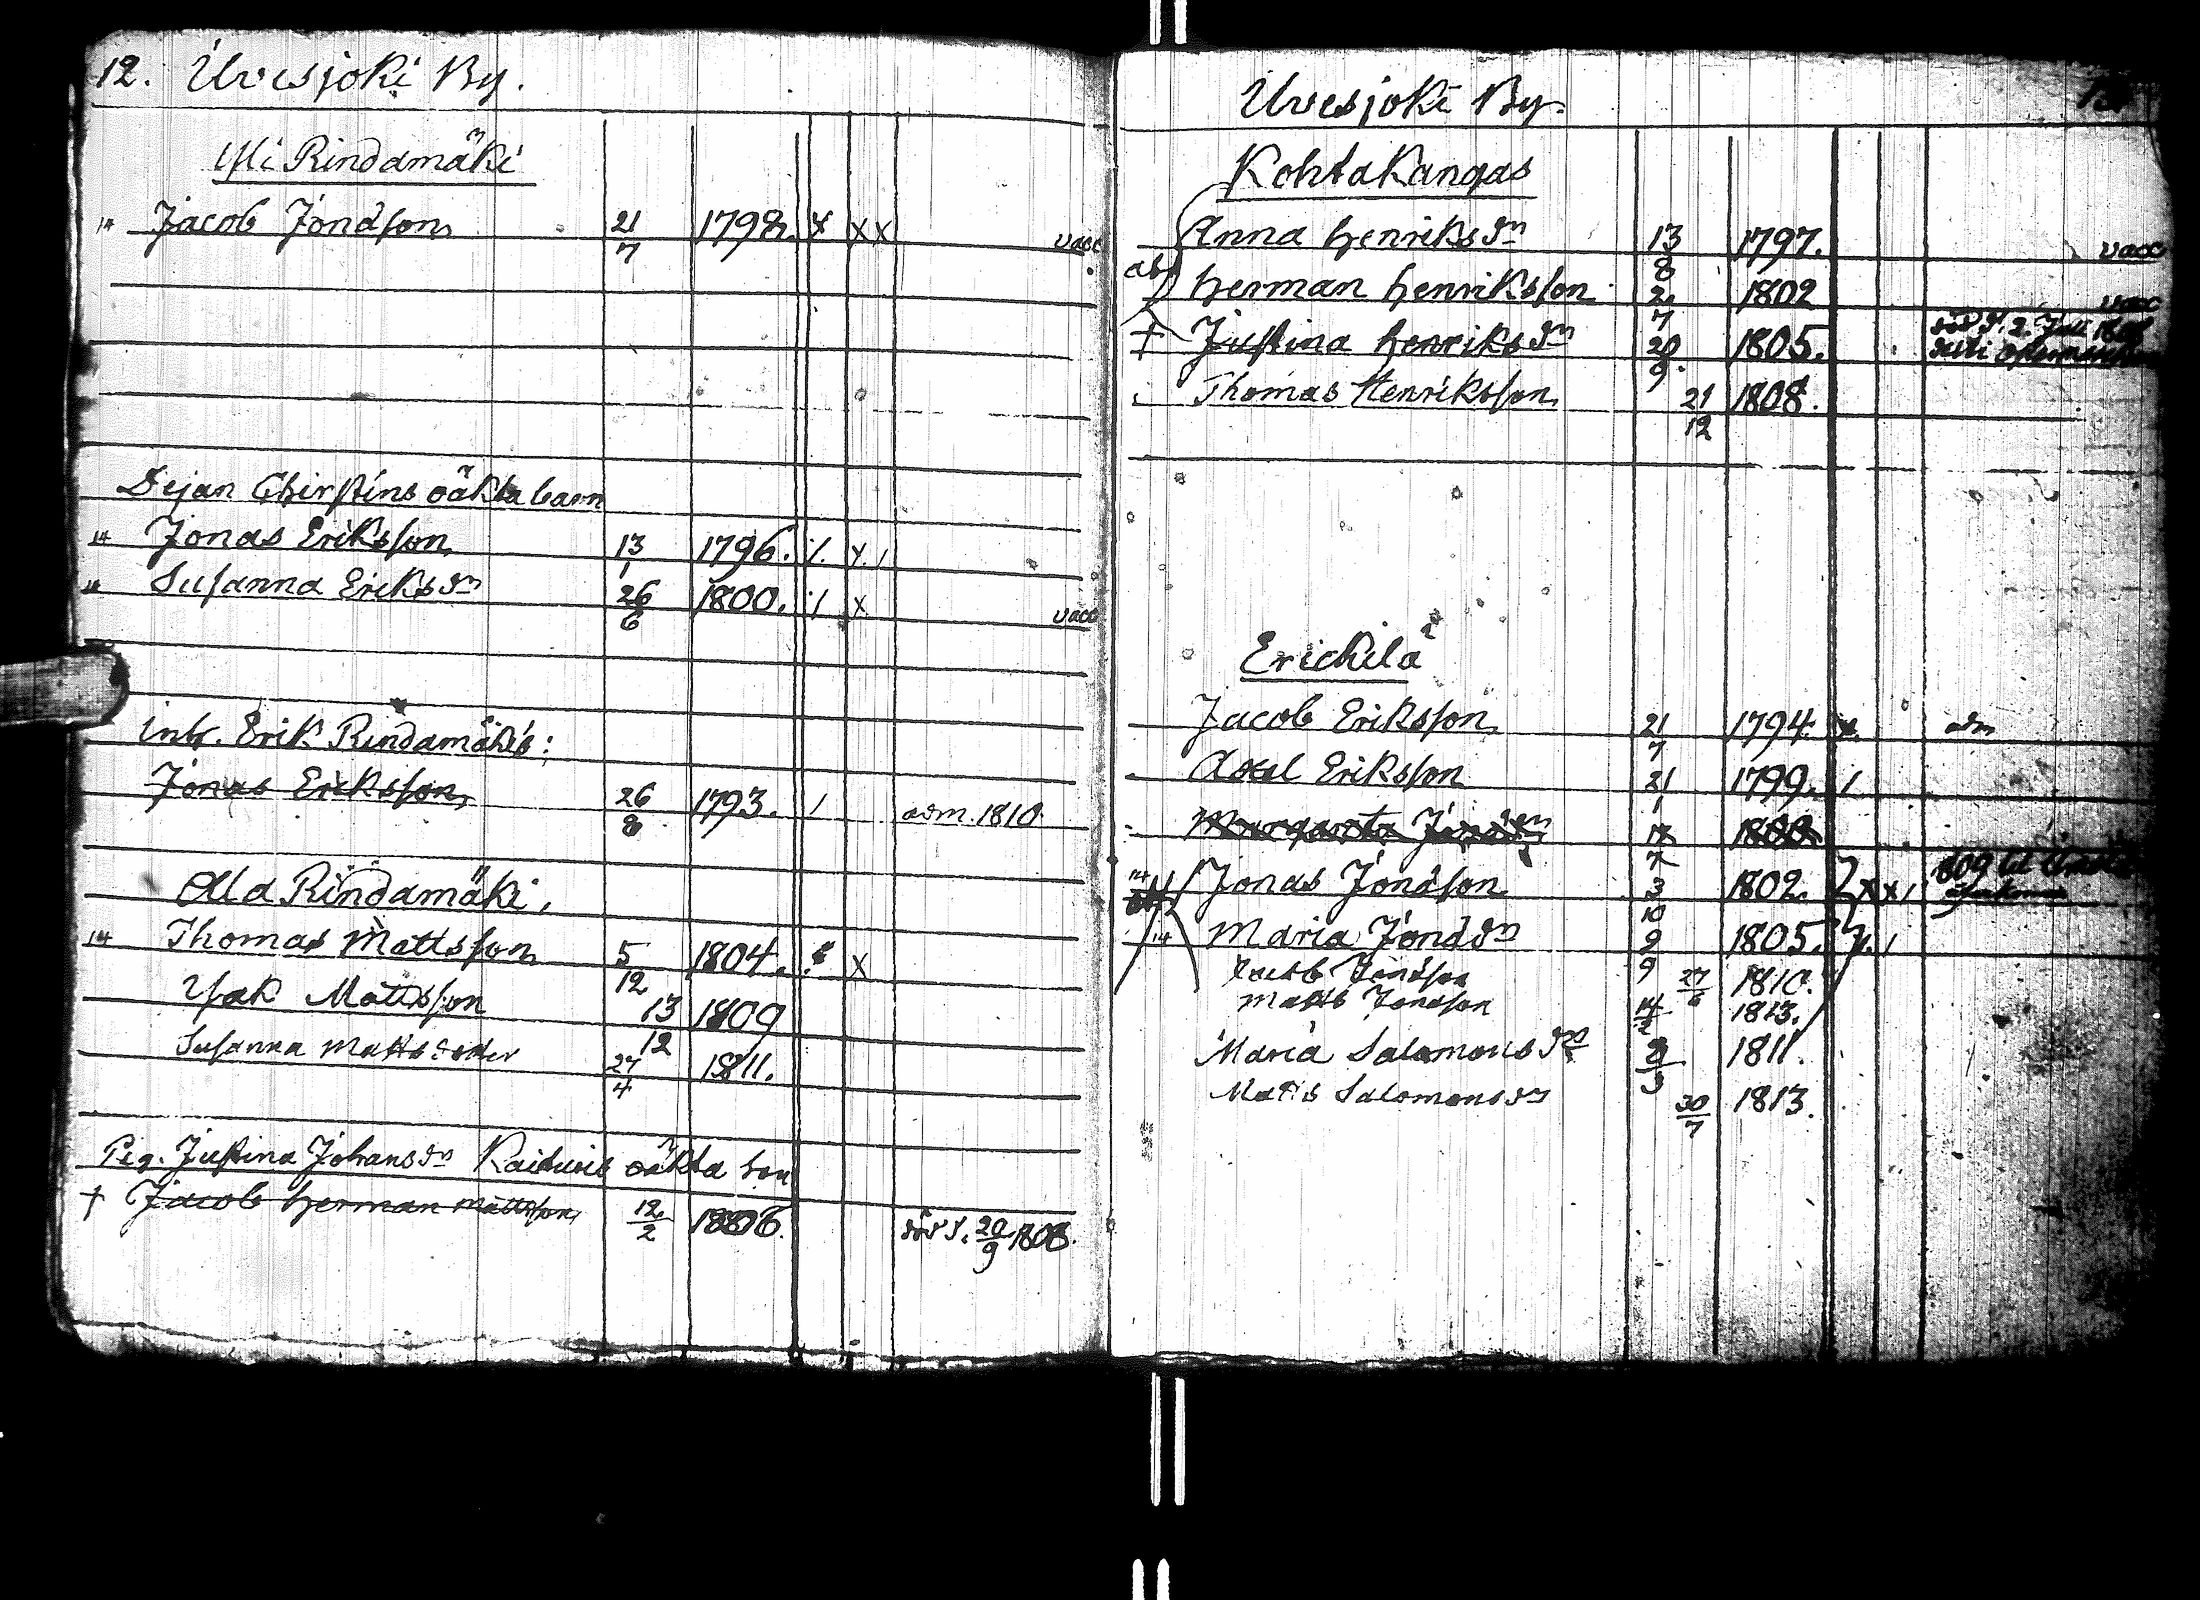 12. Uvesjoki By.
Yli Rindamäki
14 Jacob Jonasson 21/7 1798. x xx vacc
Dejan Chirstins oäkta barn
14 Jonas Eriksson 13/1 1796. /. x /
14 Susanna Eriksdn 26/6 1800. / x vacc
inh. Erik Rindamäkis:
Jonas Eriksson 26/8 1793. / adm. 1810.
Ala Rindamäki.
14 Thomas Mattsson 5/12 1804. x
Isak Mattsson 13/12 1809
Susanna Mattsdotter 27/4 1811.
Pig. Justina Johansdn oäkta son
† Jacob Herman Mattsson 12/2 1806. död d. 20/9 1808.
Uvesjoki By. 13
Kohtakangas
Anna Henriksdn 13/8 1797. vacc
Herman Henriksson 2/7 1802 vacc
† Justina Henriksdn 20/9 1805. död d. 2. Juli
Thomas Henriksson 21/12 1808.
Erickilä
Jacob Eriksson 21/7 1794. x adm
Axel Eriksson 21/1 1799. /
Margareta 17/7 1800
14 Jonas Jonasson 3/10 1802. xx/
14 Maria Jonasdn 9/9 1805. x /
Jacob Jonasson 27/6 1810.
Matts Jonasson 14/2 1813.
Maria Salomonsdn 1811.
Matts Salomonsdn 30/7 1813.